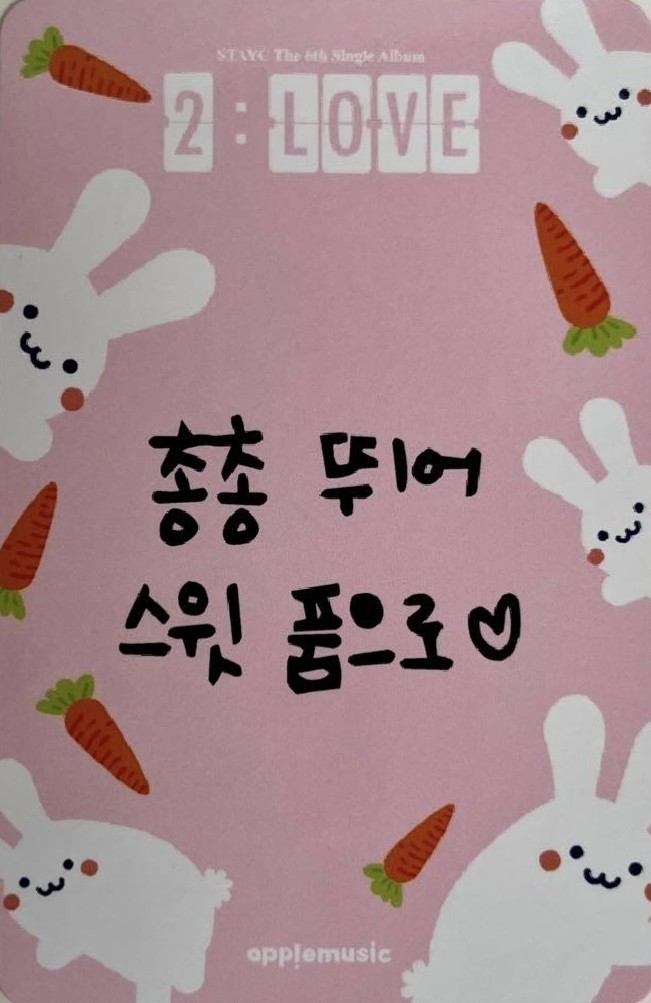 STAYC The 6th Single Album
2:LOVE
총총 뛰어
스윗 품으로♡
applemusic